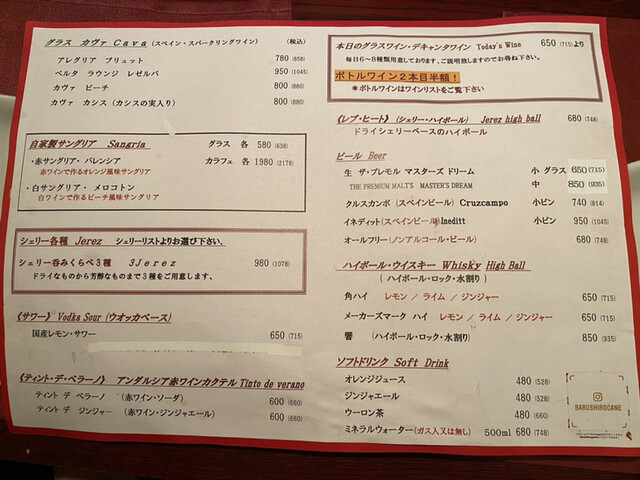 グラス カヴァ Cava (スペイン・スパークリングワイン) (税込)
アレグリア ブリュット 780 (858)
ベルタ ラウンジ レセルバ 950 (1045)
カヴァ ピーチ 800 (880)
カヴァ カシス (カシスの実入り) 800 (880)
自家製サングリア Sangria グラス 各 580 (638)
・赤サングリア・バレンシア カラフェ 各 1980 (2178)
赤ワインで作るオレンジ風味サングリア
・白サングリア・メロコトン
白ワインで作るピーチ風味サングリア
シェリー各種 Jerez シェリーリストよりお選び下さい。
シェリー呑みくらべ3種 3Jerez 980 (1078)
ドライなものから芳醇なものまで3種をご用意します。
《サワー》 Vodka Sour (ウオッカベース)
国産レモン・サワー 650 (715)
《ティント・デ・ベラーノ》 アンダルシア赤ワインカクテル Tinto de verano
ティント デ ベラーノ (赤ワイン・ソーダ) 600 (660)
ティント デ ジンジャー (赤ワイン・ジンジャエール) 600 (660)
本日のグラスワイン・デキャンタワイン Today's Wine 650 (715) より
毎日6~8種類用意しております、ご説明致しますのでお尋ね下さい。
ボトルワイン2本目半額!
*ボトルワインはワインリストをご覧下さい
《レブ・ヒート》 (シェリー・ハイボール) Jerez high ball 680 (748)
ドライシェリーベースのハイボール
ビール Beer
生 ザ・プレモル マスターズ ドリーム 小 グラス 650 (715)
THE PREMIUM MALT'S MASTER'S DREAM 中 850 (935)
クルスカンポ (スペインビール) Cruzcampo 小ビン 740 (814)
イネディット(スペインビール)Ineditt 小ビン 950 (1045)
オールフリー(ノンアルコール・ビール) 680 (748)
ハイボール・ウイスキー Whisky High Ball
(ハイボール・ロック・水割り)
角ハイ レモン / ライム / ジンジャー 650 (715)
メーカーズマーク ハイ レモン / ライム / ジンジャー 650 (715)
響 (ハイボール・ロック・水割り) 850 (935)
ソフトドリンク Soft Drink
オレンジジュース 480 (528)
ジンジャエール 480 (528)
ウーロン茶 480 (660)
ミネラルウォーター(ガス入又は無し) 500ml 680 (748)
BARUSHIROCANE